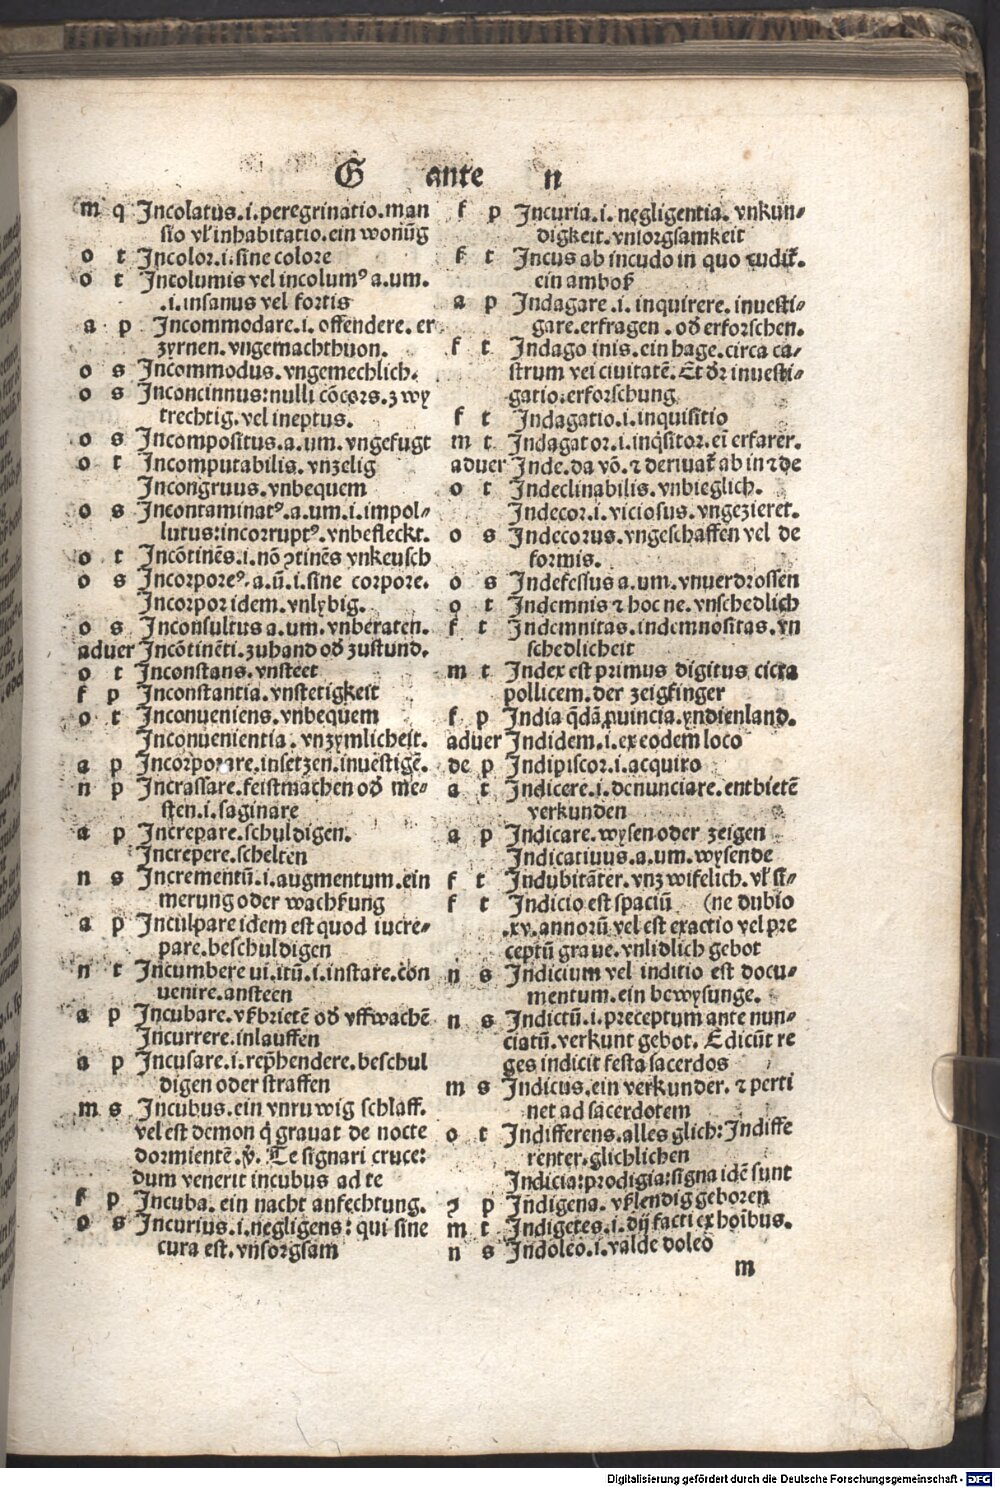 G ante n
m q Incolatus.i.peregrinatio.man
sio vl̃ inhabitatio.ein wonũg
o t Incolor.i.sine colore
o t Incolumis vel incolumꝰ a.um.
.i.insanus vel fortis
a p Incommodare.i.offendere.er
zyrnen.vngemachthuon.
o s Incommodus.vngemechlich.
o s Inconcinnus:nulli cõcors.zwy
trechtig.vel ineptus.
o s Incompositus.a.um.vngefugt
o t Incomputabilis.vnzelig
Incongruus.vnbequem
o s Incontaminatꝰ.a.um.i.impol⸗
lutus:incorruptꝰ.vnbefleckt.
o t Incõtinẽs.i.nõ ꝯtinẽs vnkeusch
o s Incorporeꝰ.a.ũ.i.sine corpore.
Incorpor idem.vnlybig.
o s Inconsultus a.um.vnberaten.
aduer Incõtinẽti.zuhand oð zustund.
o t Inconstans.vnsteet
f p Inconstantia.vnstetigkeit
o t Inconueniens.vnbequem
Inconuenientia.vnzymlicheit.
a p Incorporare.insetzen.inuestigẽ.
n p Incrassare.feistmachen oð me⸗
sten.i.saginare
a p Increpare.schuldigen.
Increpere.schelten
n s Incrementũ.i.augmentum.ein
merung oder wachßung
a p Inculpare idem est quod iucre⸗
pare.beschuldigen
n t Incumbere ui.itũ.i.instare.con
uenire.ansteen
a p Incubare.vßbrietẽ oð vffwachẽ
Incurrere.inlauffen
a p Incusare.i.rep̃hendere.beschul
digen oder straffen
m s Incubus.ein vnruwig schlaff.
vel est demon q̃ grauat de nocte
dormientẽ.ꝟ. Te signari cruce:
dum venerit incubus ad te
f p Incuba.ein nacht anfechtung.
o s Incurius.i.negligens: qui sine
cura est.vnsorgsam
f p Incuria.i.negligentia.vnkun⸗
digkeit.vnsorgsamkeit
f t Incus ab incudo in quo cudit̃.
ein amboß
a p Indagare.i.inquirere.inuesti⸗
gare.erfragen.oð erforschen.
f t Indago inis.ein hage.circa ca⸗
strum vel ciuitatẽ.Et ðr inuesti⸗
gatio.erforschung
f t Indagatio.i.inquisitio
m t Indagator.i.inq̃sitor.eĩ erfarer.
aduer Inde.da võ.⁊ deriuat̃ ab in ⁊ de
o t Indeclinabilis.vnbieglich.
Indecor.i.viciosus.vngezieret.
o s Indecorus.vngeschaffen vel de
formis.
o s Indefessus a.um.vnuerdrossen
o t Indemnis ⁊ hoc ne.vnschedlich
f t Indemnitas.indemnositas.vn
schedlicheit
m t Index est primus digitus circa
pollicem.der zeigfinger
f p India q̃dã ꝓuincia.yndienland.
aduer Indidem.i.ex eodem loco
de p Indipiscor.i.acquiro
a t Indicere.i.denunciare.entbietẽ
verkunden
a p Indicare.wysen oder zeigen
Indicatiuus.a.um.wysende
f t Indubitãter.vnzwifelich.vl̃ si⸗
f t Indicio est spaciũ (ne dubio
.xv.annorũ vel est exactio vel pre
ceptũ graue.vnlidlich gebot
n s Indicium vel inditio est docu⸗
mentum.ein bewysunge.
n s Indictũ.i.preceptum ante nun⸗
ciatũ.verkunt gebot. Edicũt re
ges indicit festa sacerdos
m s Indicus.ein verkunder.⁊ perti
net ad sacerdotem
o t Indifferens.alles glich: Indiffe
renter.glichlichen
Indicia:prodigia:signa idẽ sunt
p Indigena.vßlendig geboren
m t Indigetes.i.dij facti ex hoĩbus.
n s Indoleo.i.valde doleo
m
Digitalisierung gefördert durch die Deutsche Forschungsgemeinschaft - DFG